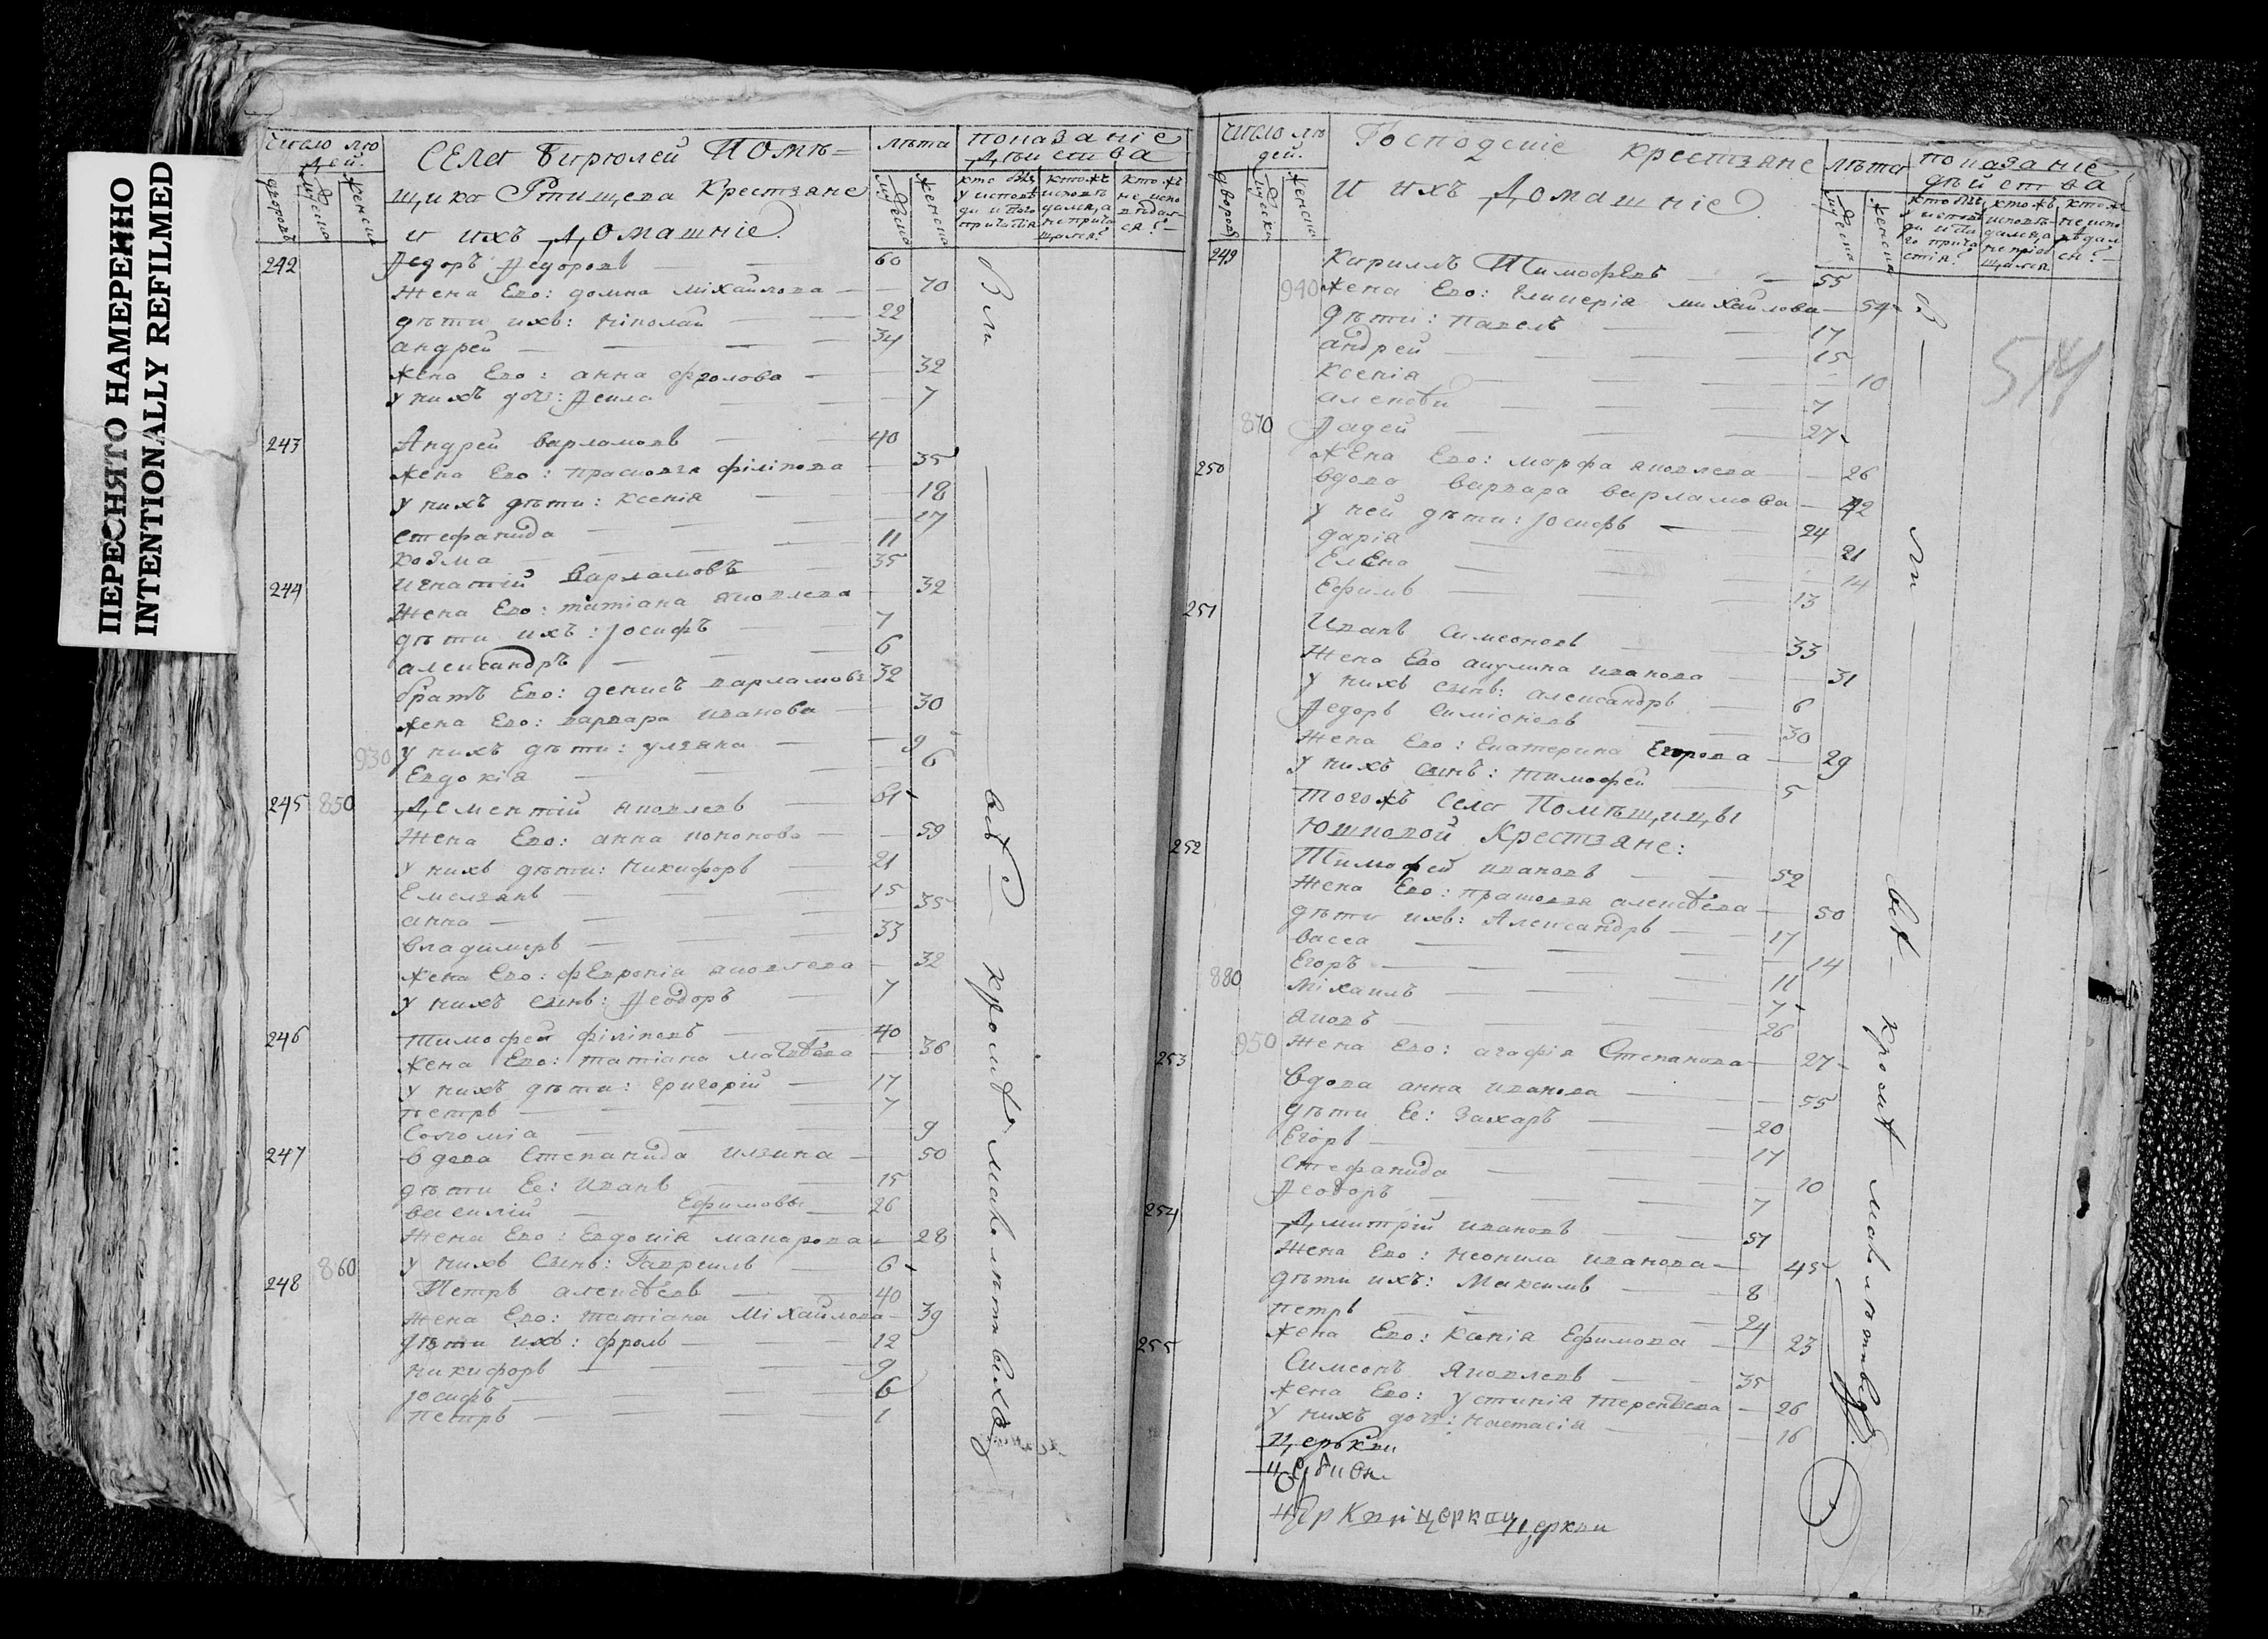 ПЕРЕСНЯТО НАМЕРЕННО
INTENTIONALLY REFILMED
число лю
дей.
дворовъ
мужеска
женска
СЕла Бирюлей Помѣ=
щика Ртищева Крестьяне
и ихъ Домашніе.
лѣта
мужеска
женска
показаніе
дѣйства
кто былъ у исповѣди и святаго причастія
ктожъ исповѣдался, а не причащался?
ктожъ не исповѣдался?
242 Ѳедоръ Ѳедоровъ 60
жена Ево: домна міхайлова 70
дѣти ихъ: ніколай 22
андрей 34
жена Ево: анна фролова 32
у нихъ дочь: Ѳекла 7
243 Андрей варламовъ 40
жена Ево: прасковья філіпова 35
у нихъ дѣти: ксенія 18
стефанида 17
козма 11
244 игнатій варламовъ 35
жена Ево: татіана яковлева 32
дѣти ихъ: Іосифъ 7
александръ 6
братъ Ево: денисъ варламовъ 32
жена Ево: варвара иванова 30
930 у нихъ дѣти: ульяна 9
Евдокія 6
245 850 Дементій яковлевъ 61
жена Ево: анна кононова 59
у нихъ дѣти: никифоръ 21
Емельянъ 15
анна 35
владимиръ 33
жена Ево: фЕвронія яковлева 32
у нихъ сынъ: Ѳеодоръ 7
246 тимофей філіповъ 40
жена Ево: татіана матвѣева 36
у нихъ дѣти: григорій 17
петръ 7
Соломіа 9
247 вдова Степанида ильина 50
дѣти Ее: иванъ 15
василій Ефимовы 26
жена Ево: Евдокія макарова 28
860 у нихъ сынъ: Гавріилъ 6
248 Петръ алексѣевъ 40
жена Ево: татіана Міхайлова 39
дѣти ихъ: фролъ 12
никифоръ 9
Іосифъ 6
петръ 1
Были всѣ кромѣ малолѣтныхъ
число лю
дей.
дворовъ
мужеска
женска
Господскіе крестьяне
и ихъ Домашніе
лѣта
мужеска
женска
показаніе
дѣйства
514
249 Кирилъ Тимофѣевъ 55
940 жена Ево: Гликерія михайлова 54
дѣти: павелъ 17
андрей 15
ксенія 10
алексѣй 7
870 Ѳадей 27
жена Ево: марфа яковлева 26
250 вдова варвара варламова 42
у ней дѣти: Іосифъ 24
дарія 21
Елена 14
Ефимъ 13
251 Иванъ симеоновъ 33
жена Ево акулина иванова 31
у нихъ сынъ: александръ 6
Ѳедоръ Симіоновъ 30
жена Ево: Екатерина Егорова 29
у нихъ сынъ: тимофей 5
тогожъ Села Помѣщицы
Юшковой Крестьяне:
252 Тимофей ивановъ 52
жена Ево: прасковья алексѣева 50
дѣти ихъ: Александръ 17
васса 14
Егоръ 11
880 Міхаилъ 7
яковъ 26
950 жена Ево: агафія Степанова 27
253 Вдова анна иванова 55
дѣти Ее: Захаръ 20
Егоръ 17
стефанида 10
Ѳеодоръ 7
254 Дмитрій ивановъ 51
жена Ево: неонила иванова 45
дѣти ихъ: Максимъ 8
петръ 24
жена Ево: Ксенія Ефимова 23
255 Симеонъ Яковлевъ 35
жена Ево: устинія терентьева 26
у нихъ дочь: настасія 16
Были всѣ кромѣ малолѣтныхъ
церкви
церкви церкви